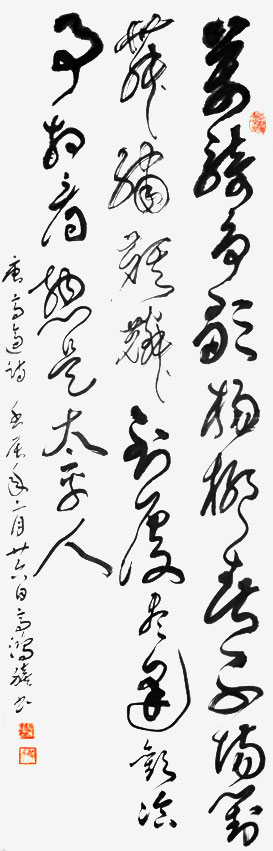 萬騎爭歌楊柳春千場對
舞繡麒麟到處盡逢歡洽
事相看總是太平人
唐高適詩 壬辰年二月廿六日高鴻書